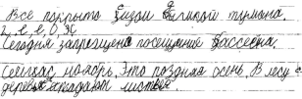 Все покрыто сизой дымкой тумана.
Сегодня запрещено посещение бассейна.
Сейчас ноябрь. Это поздняя осень. В лесу с
деревьев опадают листья